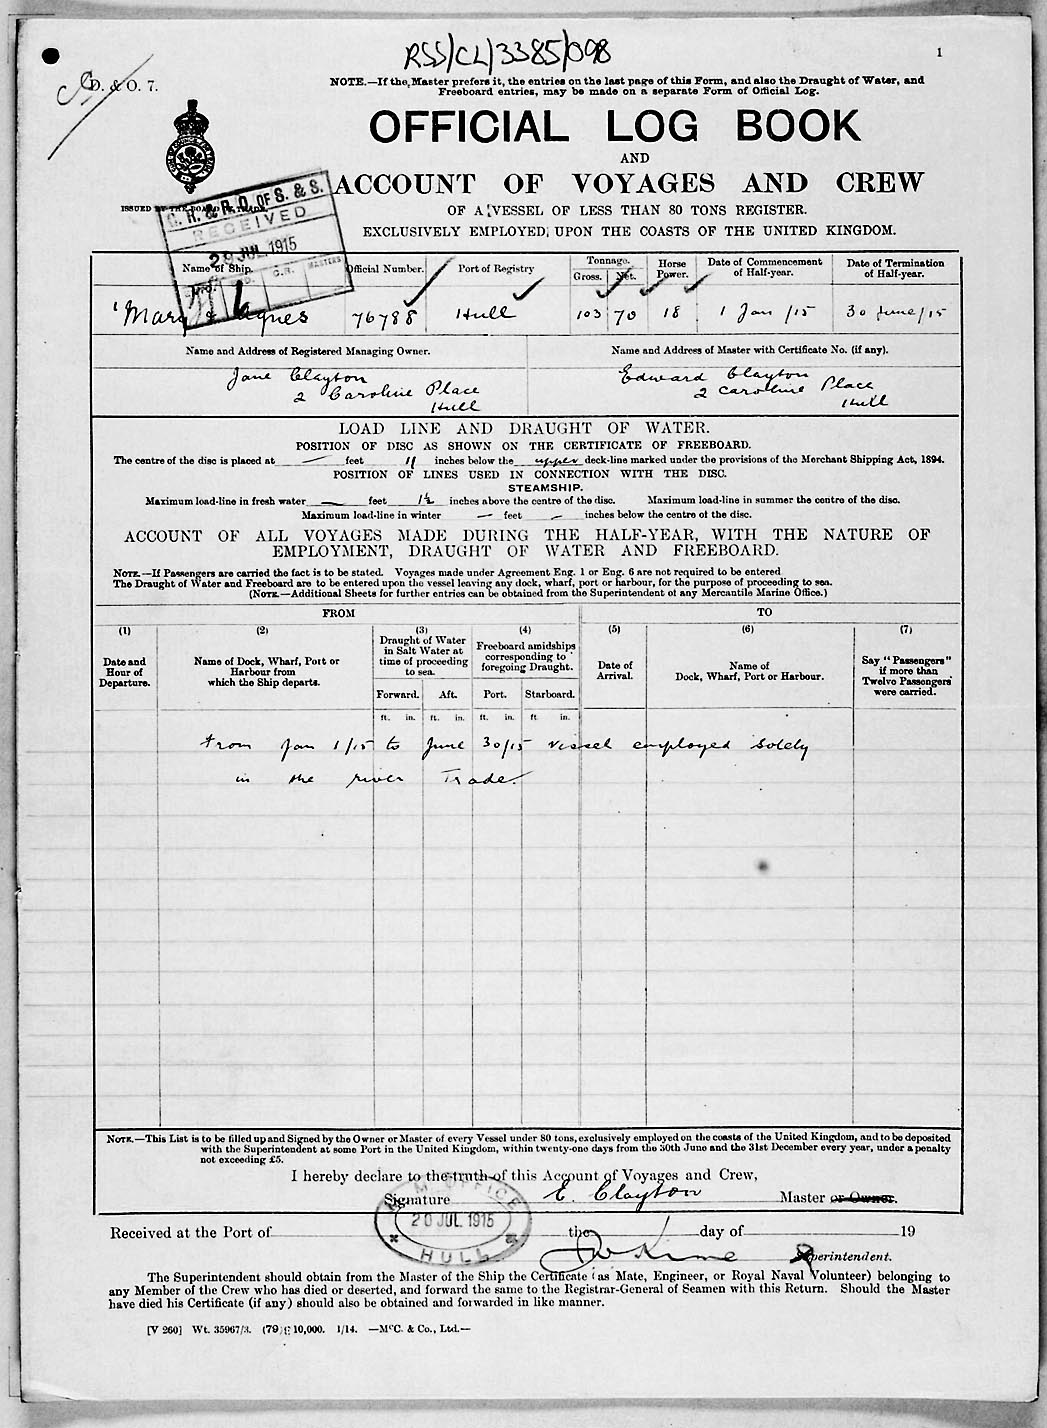 RSS/CL/3385/098
1
D. & O. 7.
NOTE.—If the Master prefers it, the entries on the last page of this Form, and also the Draught of Water, and
Freeboard entries, may be made on a separate Form of Official Log.
OFFICIAL LOG BOOK
AND
ACCOUNT OF VOYAGES AND CREW
ISSUED BY THE BOARD OF TRADE
OF A VESSEL OF LESS THAN 80 TONS REGISTER.
EXCLUSIVELY EMPLOYED UPON THE COASTS OF THE UNITED KINGDOM.
G. R. & R. O. OF S. & S.
RECEIVED
28 JUL 1915
C.R. MASTERS
Name of Ship. Official Number. Port of Registry Tonnage. Horse Power. Date of Commencement of Half-year. Date of Termination of Half-year.
Gross. Net.
"Mary & Agnes 76788 Hull 103 70 18 1 Jan /15 30 June/15
Name and Address of Registered Managing Owner. Name and Address of Master with Certificate No. (if any).
Jane Clayton Edward Clayton
2 Caroline Place 2 Caroline Place
Hull Hull
LOAD LINE AND DRAUGHT OF WATER.
POSITION OF DISC AS SHOWN ON THE CERTIFICATE OF FREEBOARD.
The centre of the disc is placed at — feet 11 inches below the upper deck-line marked under the provisions of the Merchant Shipping Act, 1894.
POSITION OF LINES USED IN CONNECTION WITH THE DISC.
STEAMSHIP.
Maximum load-line in fresh water — feet 1½ inches above the centre of the disc. Maximum load-line in summer the centre of the disc.
Maximum load-line in winter — feet — inches below the centre of the disc.
ACCOUNT OF ALL VOYAGES MADE DURING THE HALF-YEAR, WITH THE NATURE OF
EMPLOYMENT, DRAUGHT OF WATER AND FREEBOARD.
NOTE.—If Passengers are carried the fact is to be stated. Voyages made under Agreement Eng. 1 or Eng. 6 are not required to be entered
The Draught of Water and Freeboard are to be entered upon the vessel leaving any dock, wharf, port or harbour, for the purpose of proceeding to sea.
(NOTE.—Additional Sheets for further entries can be obtained from the Superintendent of any Mercantile Marine Office.)
FROM TO
(1) (2) (3) (4) (5) (6) (7)
Date and Hour of Departure. Name of Dock, Wharf, Port or Harbour from which the Ship departs. Draught of Water in Salt Water at time of proceeding to sea. Freeboard amidships corresponding to foregoing Draught. Date of Arrival. Name of Dock, Wharf, Port or Harbour. Say "Passengers" if more than Twelve Passengers were carried.
Forward. Aft. Port. Starboard.
ft. in. ft. in. ft. in. ft in.
From Jan 1/15 to June 30/15 vessel employed solely
in the river Trade.
NOTE.—This List is to be filled up and Signed by the Owner or Master of every Vessel under 80 tons, exclusively employed on the coasts of the United Kingdom, and to be deposited
with the Superintendent at some Port in the United Kingdom, within twenty-one days from the 30th June and the 31st December every year, under a penalty
not exceeding £5.
I hereby declare to the truth of this Account of Voyages and Crew,
Signature E. Clayton Master or Owner.
M. M. OFFICE
20 JUL 1915
HULL
Received at the Port of the day of 19
Superintendent.
The Superintendent should obtain from the Master of the Ship the Certificate (as Mate, Engineer, or Royal Naval Volunteer) belonging to
any Member of the Crew who has died or deserted, and forward the same to the Registrar-General of Seamen with this Return. Should the Master
have died his Certificate (if any) should also be obtained and forwarded in like manner.
[V 260] Wt. 35967/3. (79) 10,000. 1/14. —McC. & Co., Ltd.—